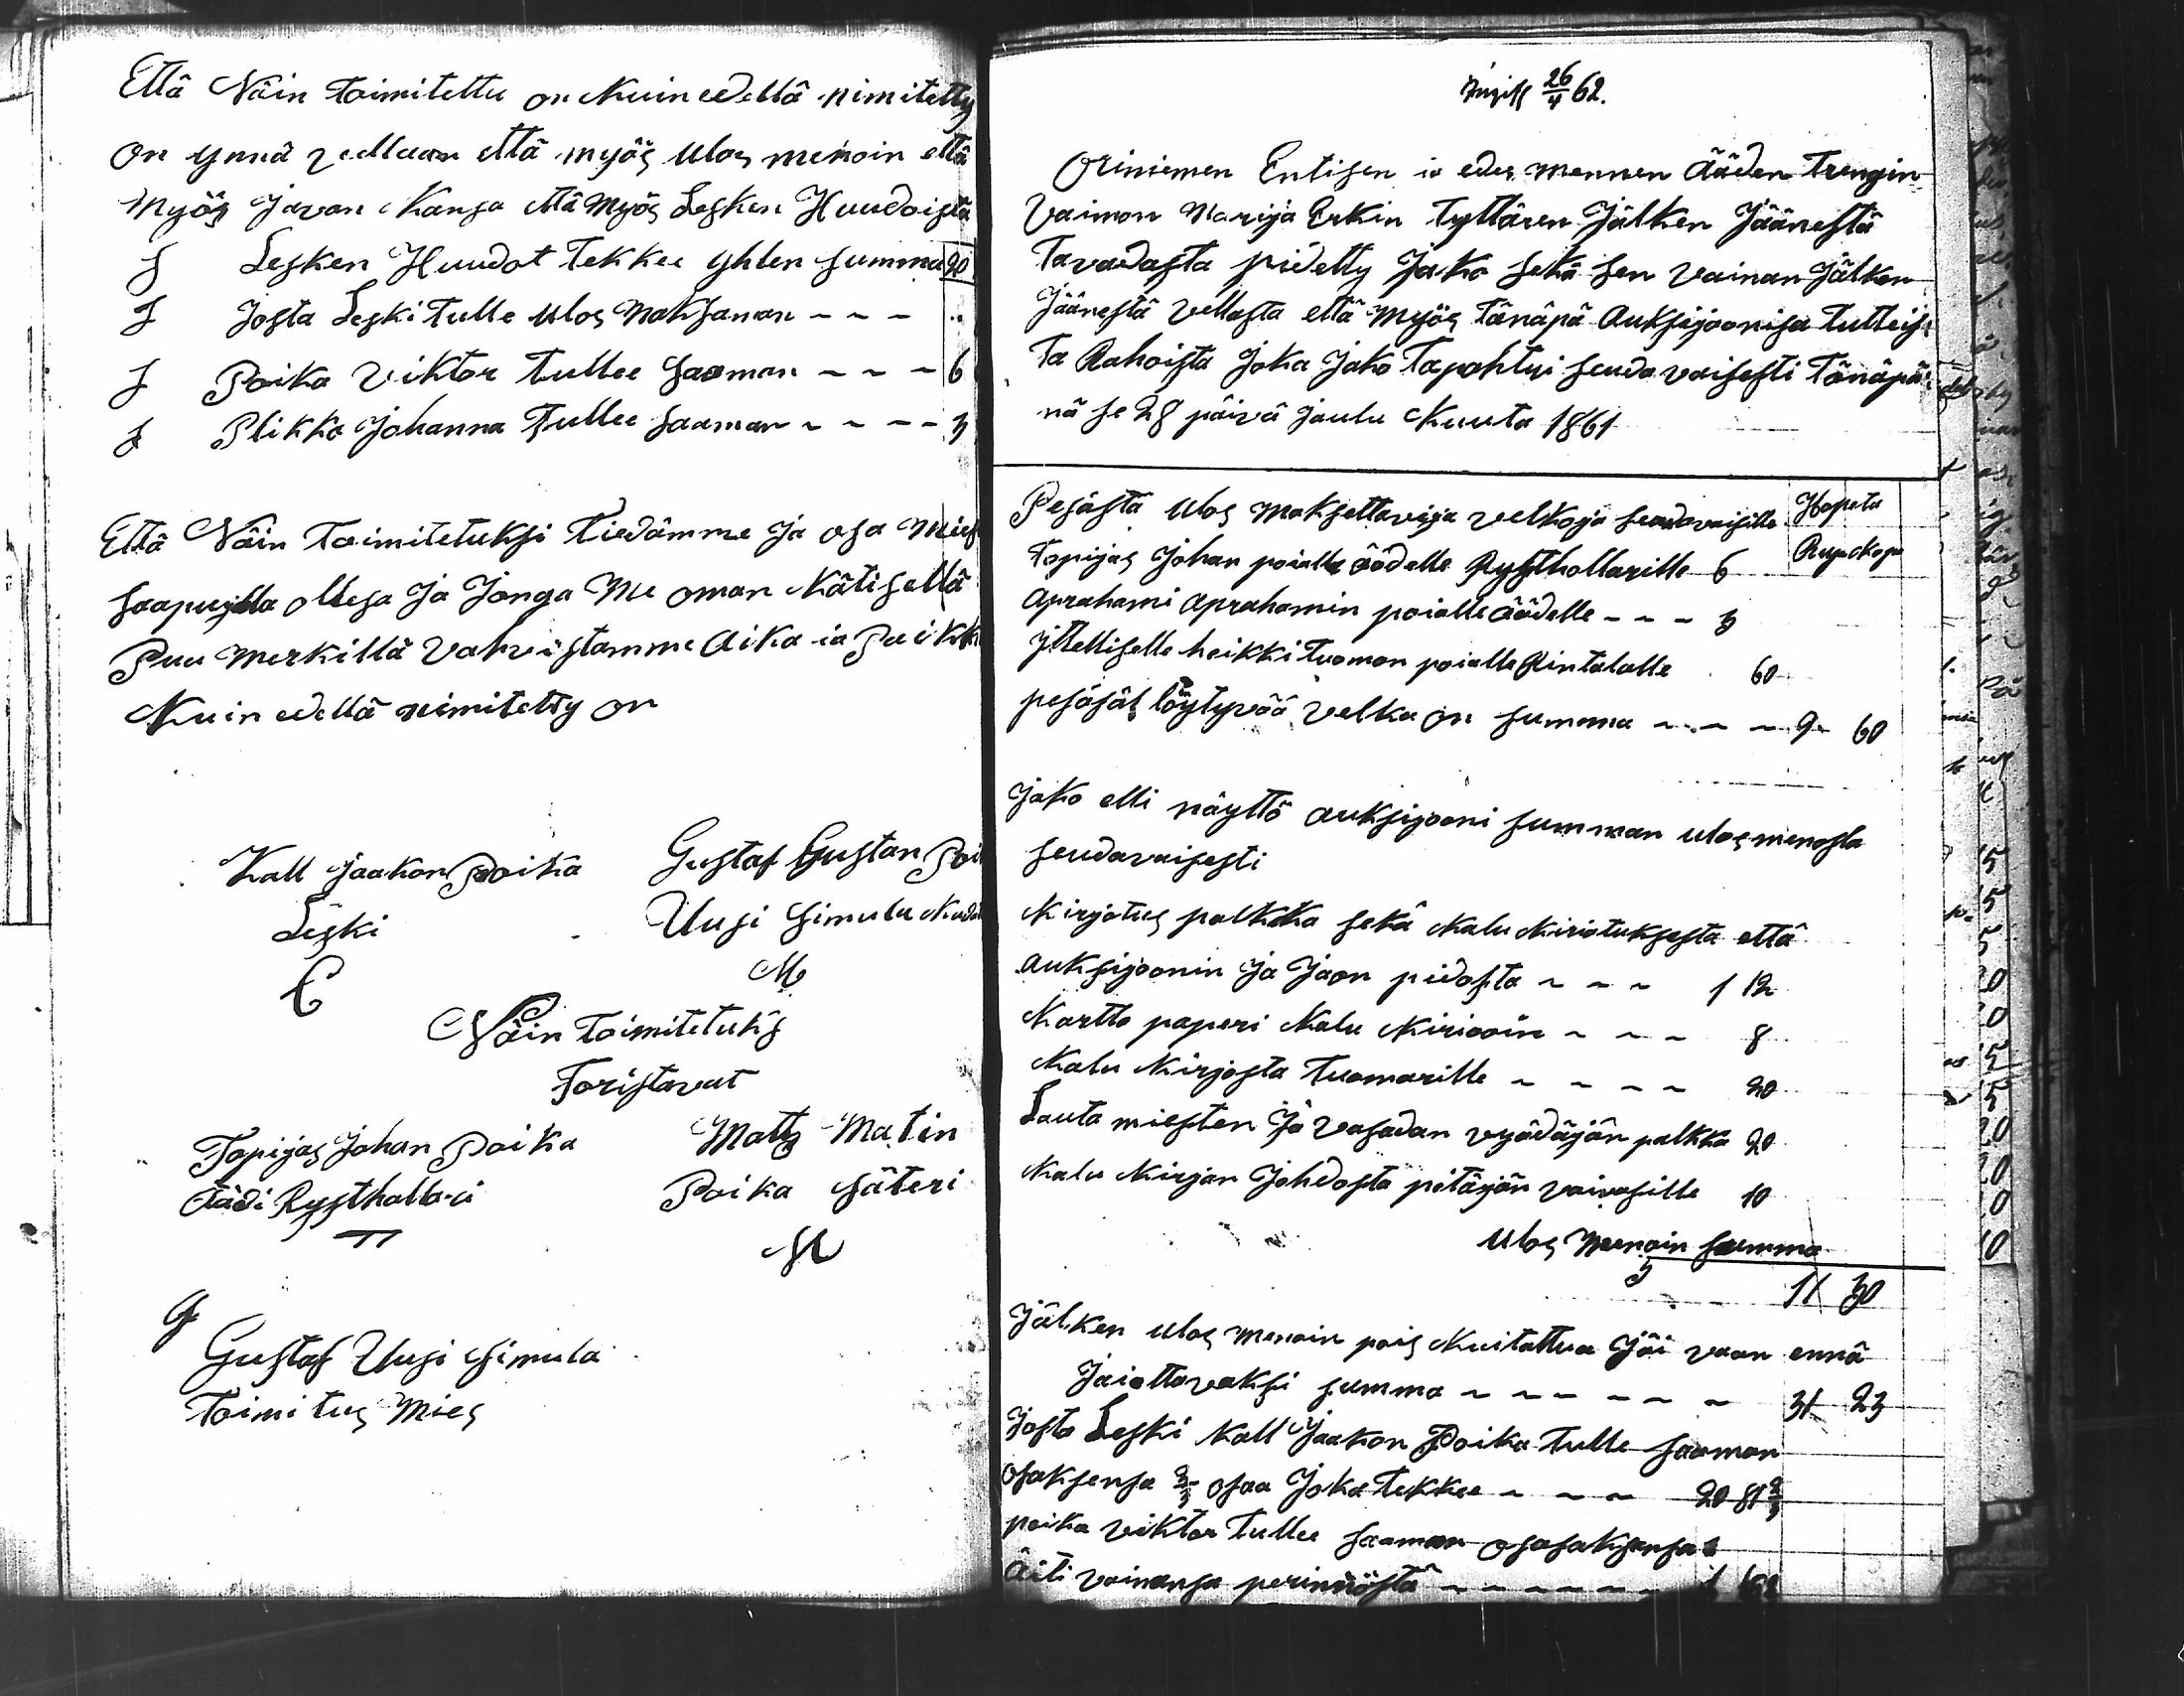 Että Näin toimitettu on Kuin edellä nimitetty
on ynnä vellaan että myös ulos menoin että
Myös Javan Kansa että Myös Lesken Huudoista
S Lesken Huudot tekkee yhlen summa 20
S Josta Leski tulle ulos maksaman - - -
S Poika Viktor tullee saaman - - - 6
S Plikka Johanna tullee saaman - - - - 3
Että Näin toimitetuksi tiedämme Ja osa
saapuzilla ollesa Ja Jonga Me oman Kätisellä
Puu Merkillä vahvistamme Aika ia Paikka
Kuin edellä nimitetty on
Kall Jaakon Poika
Leski
E
Gustaf Gustan Poi
Uusi Simula
M
Näin toimitetuks
Toristavat
Topijas Johan Poika
Äädi Rysthollari
Matts Matin
Poika Säteri
G
Gustaf Uusi Simula
Toimitus Mies
26/4 62.
Oriniemen Entisen ia edes mennen Ääden Trengin
Vaimon Marija Erkin Tyttären Jälken Jäänestä
Tavadasta pidetty Jako sekä sen vainan Jälken
Jäänestä vellasta että myös tänäpä Auksijoonisa tulleis
ta Rahoista Joka Jako Tapahtui seuda vaisesti Tänäpä
nä se 28 päivä Joulu Kuuta 1861
Pesästä ulos maksettavija velkoja seudavaisille Hopeta
Topijas Johan poialle äädelle Rysthollarille 6 Rup Kop
Aprahami Aprahamin poialle äädelle - - - 3
Jttelliselle heikki tuoman poialle Rintalalle 60
pesäsäs löytyvää velka on summa - - - 9 60
Jako elli näyttö auksijooni summan ulos menosta
seudavaisesti
Kirjotus palkka sekä Kalu Kiriotuksesta että
auksijoonin Ja Jaon pidosta - - - 1 12
Kartta paperi Kalu Kiriooin - - - 8
Kalu Kirjosta tuomarille - - - - 20
Lauta miesten Ja vasadan vyädäjän palkka 20
Kalu Kirjan Johdosta pitäjän vaivasille 10
Ulos Menoin summa
11 30
Jälken ulos menoin pois Kuitattua Jäi vaan ennä
Jaiottavaksi summa - - - - - - 31 23
Josta Leski Kall Jaakon Poika tulle saaman
osaksensa 2/3 osaa Joka tekkee - - - 20 81 2/3
poika viktor tullee saaman osasaksensa
äiti vainansa perinnöstä - - - - - -